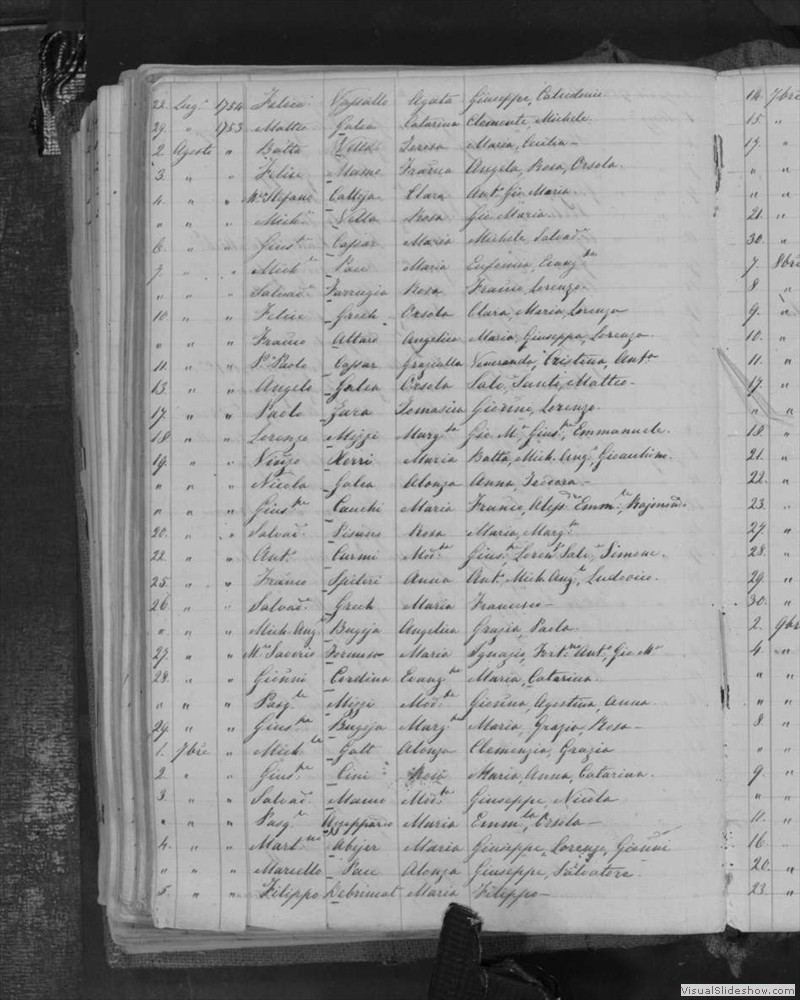 22. Lug.o 1754 Felice Vassallo Agata Giuseppe, Calcedonio
29. " 1753 Matteo Galea Catarina Clemente, Michele.
2. Agosto " Batta Vella Teresa Maria, Cecilia –
3. " " Felice Mamo Franca Angela, Rosa, Orsola.
4. " " Mro Stefano Calleja Clara Ant.o Gio Maria.
" " " Mich.le Vella Rosa Gio Maria.
6. " " Gius.e Cassar Maria Michele, Salvad.e
7. " " Mich.le Pace Maria Eufemia, Evang.ta
" " " Salvad.e Farrugia Rosa Franco, Lorenzo.
10. " " Felice Grech Orsola Clara, Maria, Lorenzo
" " " Franco Attard Angelica Maria, Giuseppa, Lorenzo
11. " " Paolo Cassar Graziulla Veneranda, Cristina, Ant.o
13. " " Angelo Galea Orsola Salv., Santi, Matteo –
17. " " Paolo Zara Tomasica Gionni, Lorenzo.
18. " " Lorenzo Mizzi Marg.ta Gio M.a Gius.e, Emmanuele.
19. " " Vinzo Xerri Maria Batta, Mich. Ang.o, Gioacchino.
" " " Nicola Galea Alonza Anna, Teodora –
" " " Gius.e Cauchi Maria Franco, Aless.o Emm.le,
20. " " Salvad.e Pisano Rosa Maria, Marg.ta
22. " " Ant.o Curmi Mod.ta Gius.e, Loren.o Salv.e Simone.
25. " " Franco Spiteri Anna Ant.o Mich. Ang.o, Ludovico.
26. " " Salvad.e Grech Maria Francesco –
" " " Mich. Ang.o Bugeja Angelica Grazia, Paola.
27. " " Mro Saverio Formosa Maria Ignazio, Fort.to Ant.o, Gio M.a
28. " " Gionni Cordina Evang.ta Maria, Catarina.
" " " Pasq.le Mizzi Mod.ta Gionna, Agostina, Anna.
29. " " Gius.e Bugeja Marg.ta Maria, Grazia, Rosa –
1. 7bre " Mich.le Gatt Alonza Clemenzia, Grazia
2. " " Gius.e Cini Rosa Maria Anna, Catarina.
3. " " Salvad.e Mamo Mod.ta Giuseppe, Nicola
" " " Pasq.e Maria Emm.la, Orsola –
4. " " Mart.no Abejer Maria Giuseppe, Lorenzo, Gionni
" " " Marcello Pace Alonza Giuseppe, Salvatore
5. " " Filippo Debrincat Maria Filippo –
14. 7bre
15. "
17. "
" "
" "
21. "
30. "
7. 8bre
8 "
9. "
10. "
11. "
17. "
" "
18. "
21. "
22. "
23. "
27. "
28. "
29. "
30. "
2. 9bre
4. "
" "
" "
8. "
" "
9. "
" "
11. "
16. "
20. "
23. "
VisualSlideshow.com